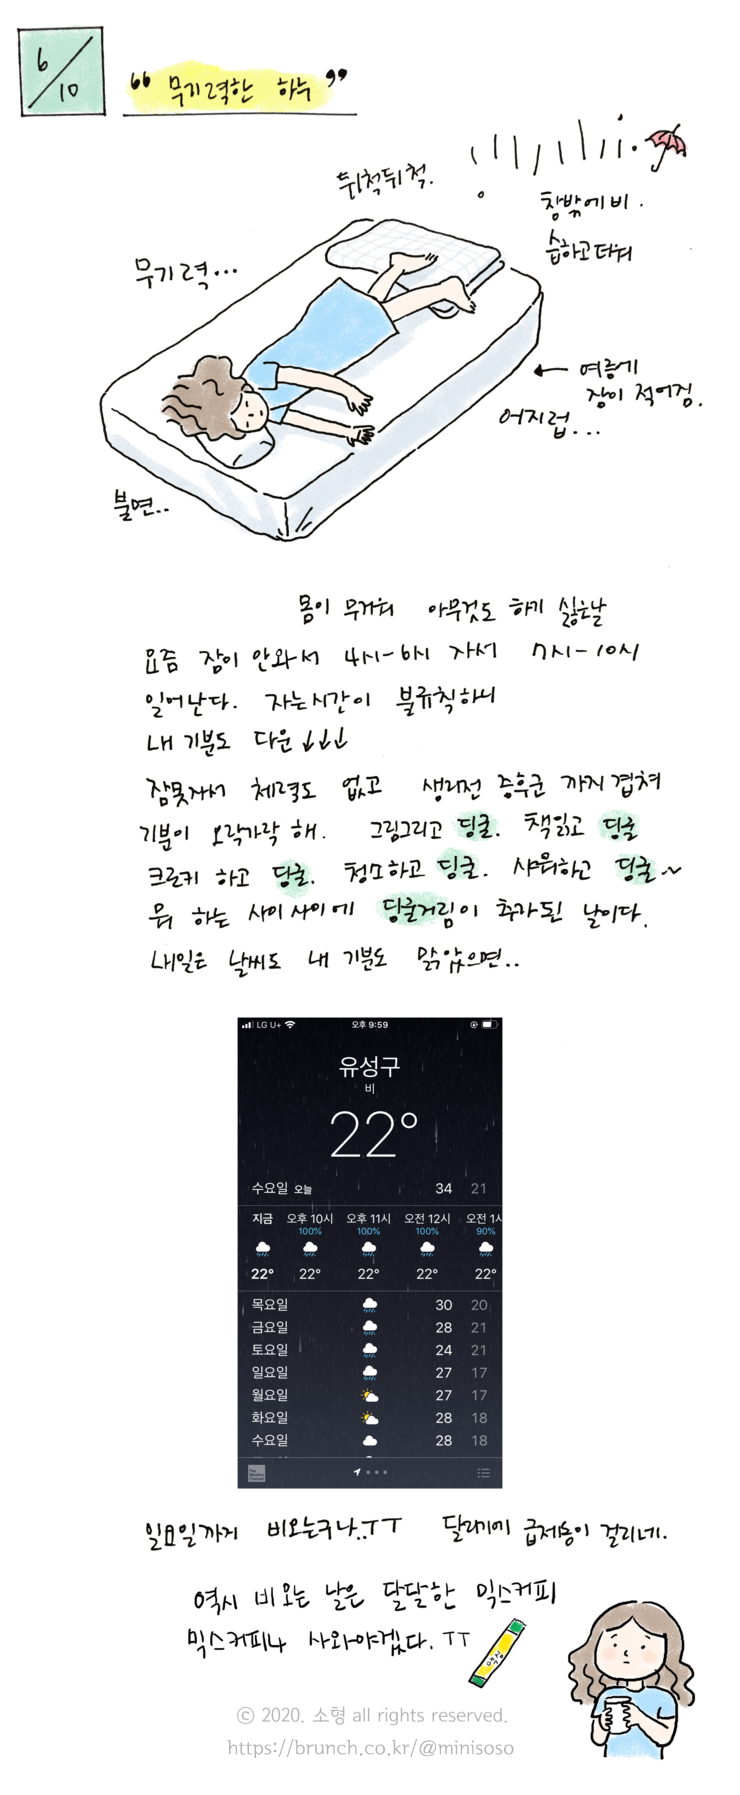 6/10
“ 무기력한 하루 ”
뒤척뒤척.
창밖에 비.
습하고 더워
무기력...
← 여름에
잠이 적어짐.
어지럽...
불면..
몸이 무거워 아무것도 하기 싫은날
요즘 잠이 안와서 4시-6시 자서 7시-10시
일어난다. 자는시간이 불규칙하니
내 기분도 다운↓↓↓
잠못자서 체력도 없고 생리전 증후군 까지 겹쳐
기분이 오락가락 해. 그림그리고 딩굴. 책읽고 딩굴
크로키 하고 딩굴. 청소하고 딩굴. 샤워하고 딩굴~
뭐 하는 사이사이에 딩굴거림이 추가된 날이다.
내일은 날씨도 내 기분도 맑았으면..
LG U+ 오후 9:59
유성구
비
22°
수요일 오늘 34 21
지금 오후 10시 오후 11시 오전 12시 오전 1시
100% 100% 100% 90%
22° 22° 22° 22° 22°
목요일 30 20
금요일 28 21
토요일 24 21
일요일 27 17
월요일 27 17
화요일 28 18
수요일 28 18
일요일까지 비오는구나..ㅜㅜ 달리기에 급제동이 걸리네.
역시 비오는 날은 달달한 믹스커피
믹스커피나 사와야겠다.ㅜㅜ
© 2020. 소형 all rights reserved.
https://brunch.co.kr/@minisoso